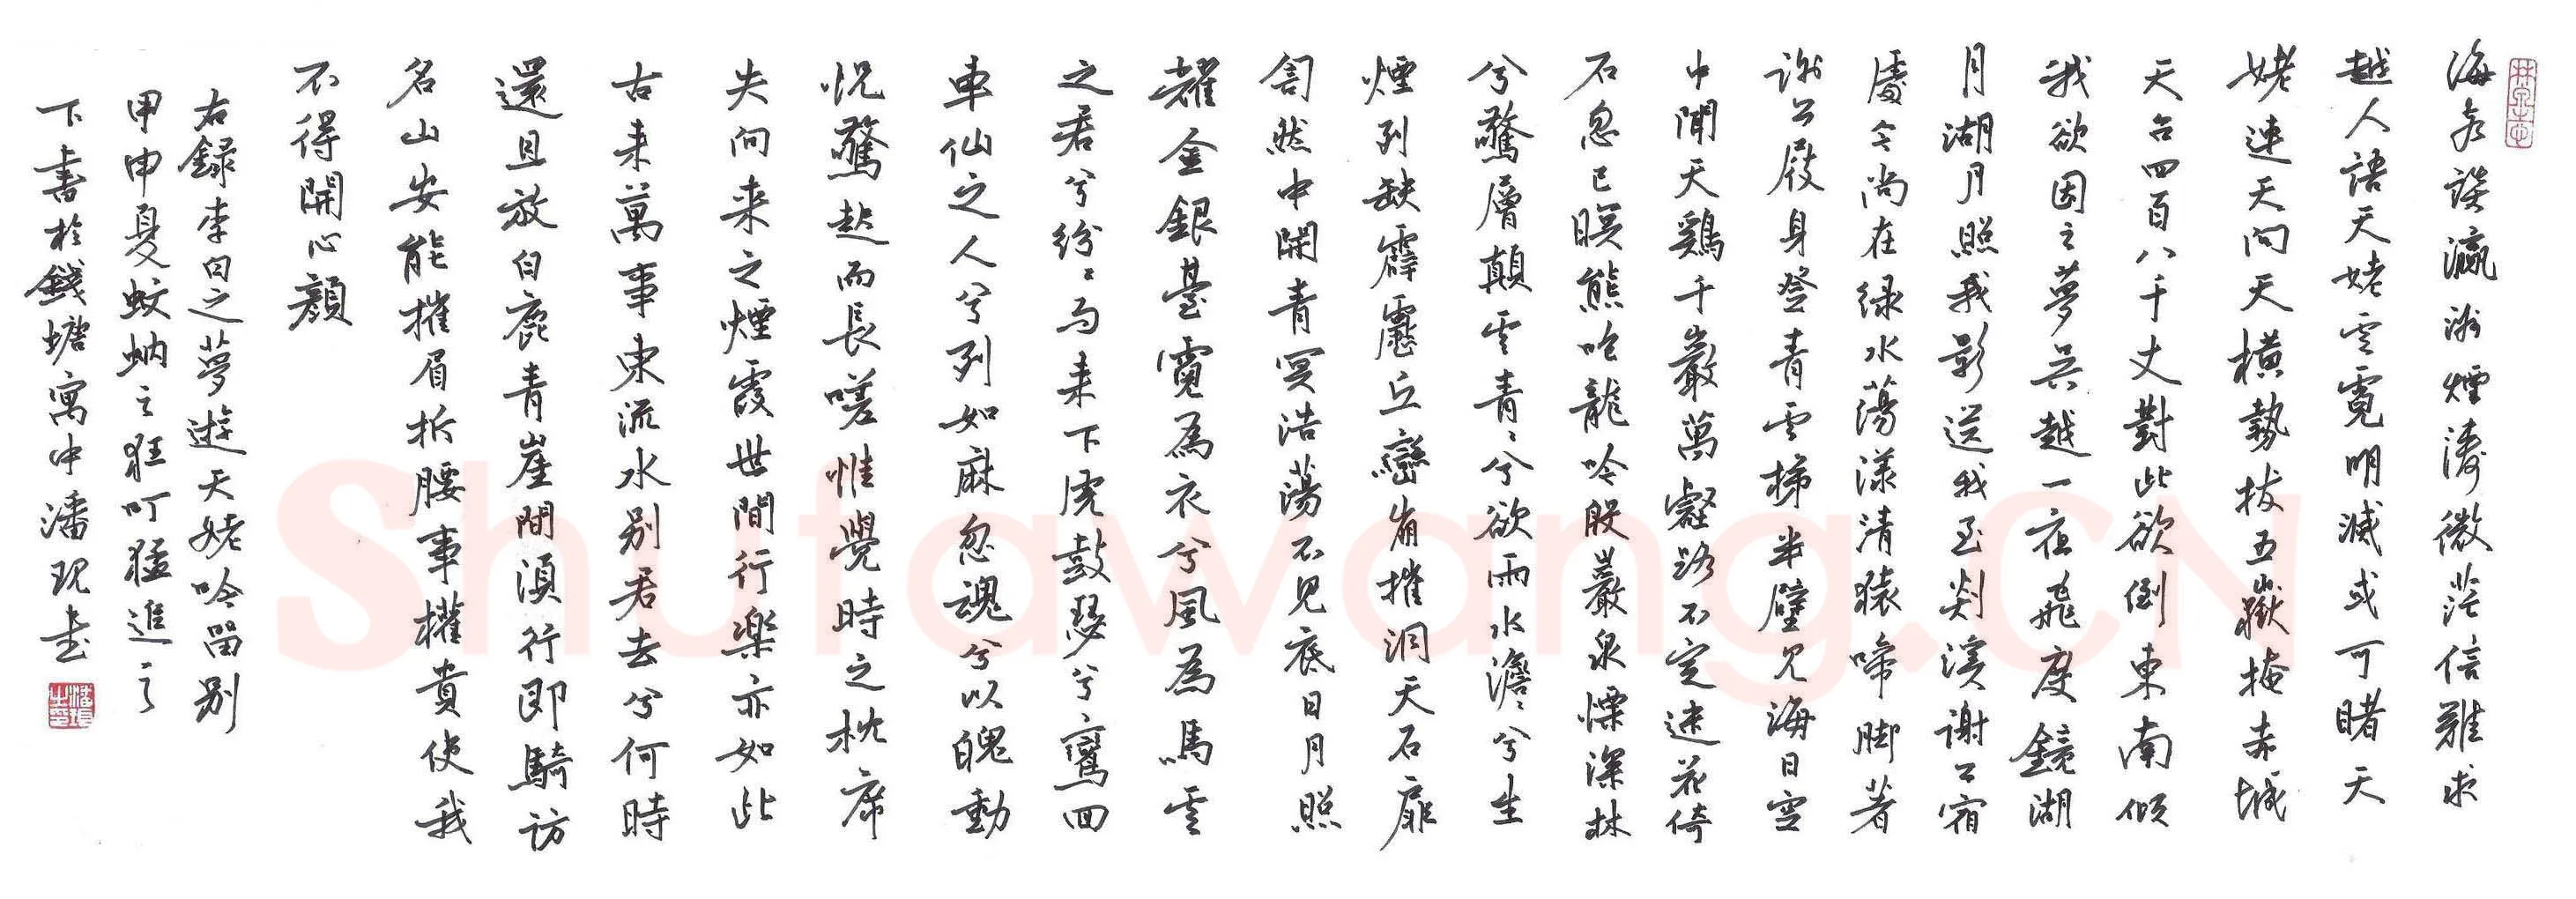 海客談瀛洲煙濤微茫信難求
越人語天姥雲霓明滅或可睹天
姥連天向天橫勢拔五嶽掩赤城
天台四百八千丈對此欲倒東南傾
我欲因之夢吳越一夜飛度鏡湖
月湖月照我影送我至剡溪謝公宿
處今尚在綠水蕩漾清猿啼腳著
謝公屐身登青雲梯半壁見海日空
中聞天鷄千巖萬壑路不定迷花倚
石忽已暝熊咆龍吟殷巖泉慄深林
兮驚層顛雲青〻兮欲雨水澹〻兮生
煙列缺霹靂丘巒崩摧洞天石扉
訇然中開青冥浩蕩不見底日月照
耀金銀臺霓為衣兮風為馬雲
之君兮紛〻而来下虎鼓瑟兮鸞回
車仙之人兮列如麻忽魂兮以魄動
怳驚起而長嗟惟覺時之枕席
失向来之煙霞世間行樂亦如此
古来萬事東流水別君去兮何時
還且放白鹿青崖間須行即騎訪
名山安能摧眉折腰事權貴使我
不得開心顏
右録李白之夢遊天姥吟留別
甲申夏蚊蚋之狂叮猛進之
下書於錢塘寓中潘玑書
Shufawang.CN